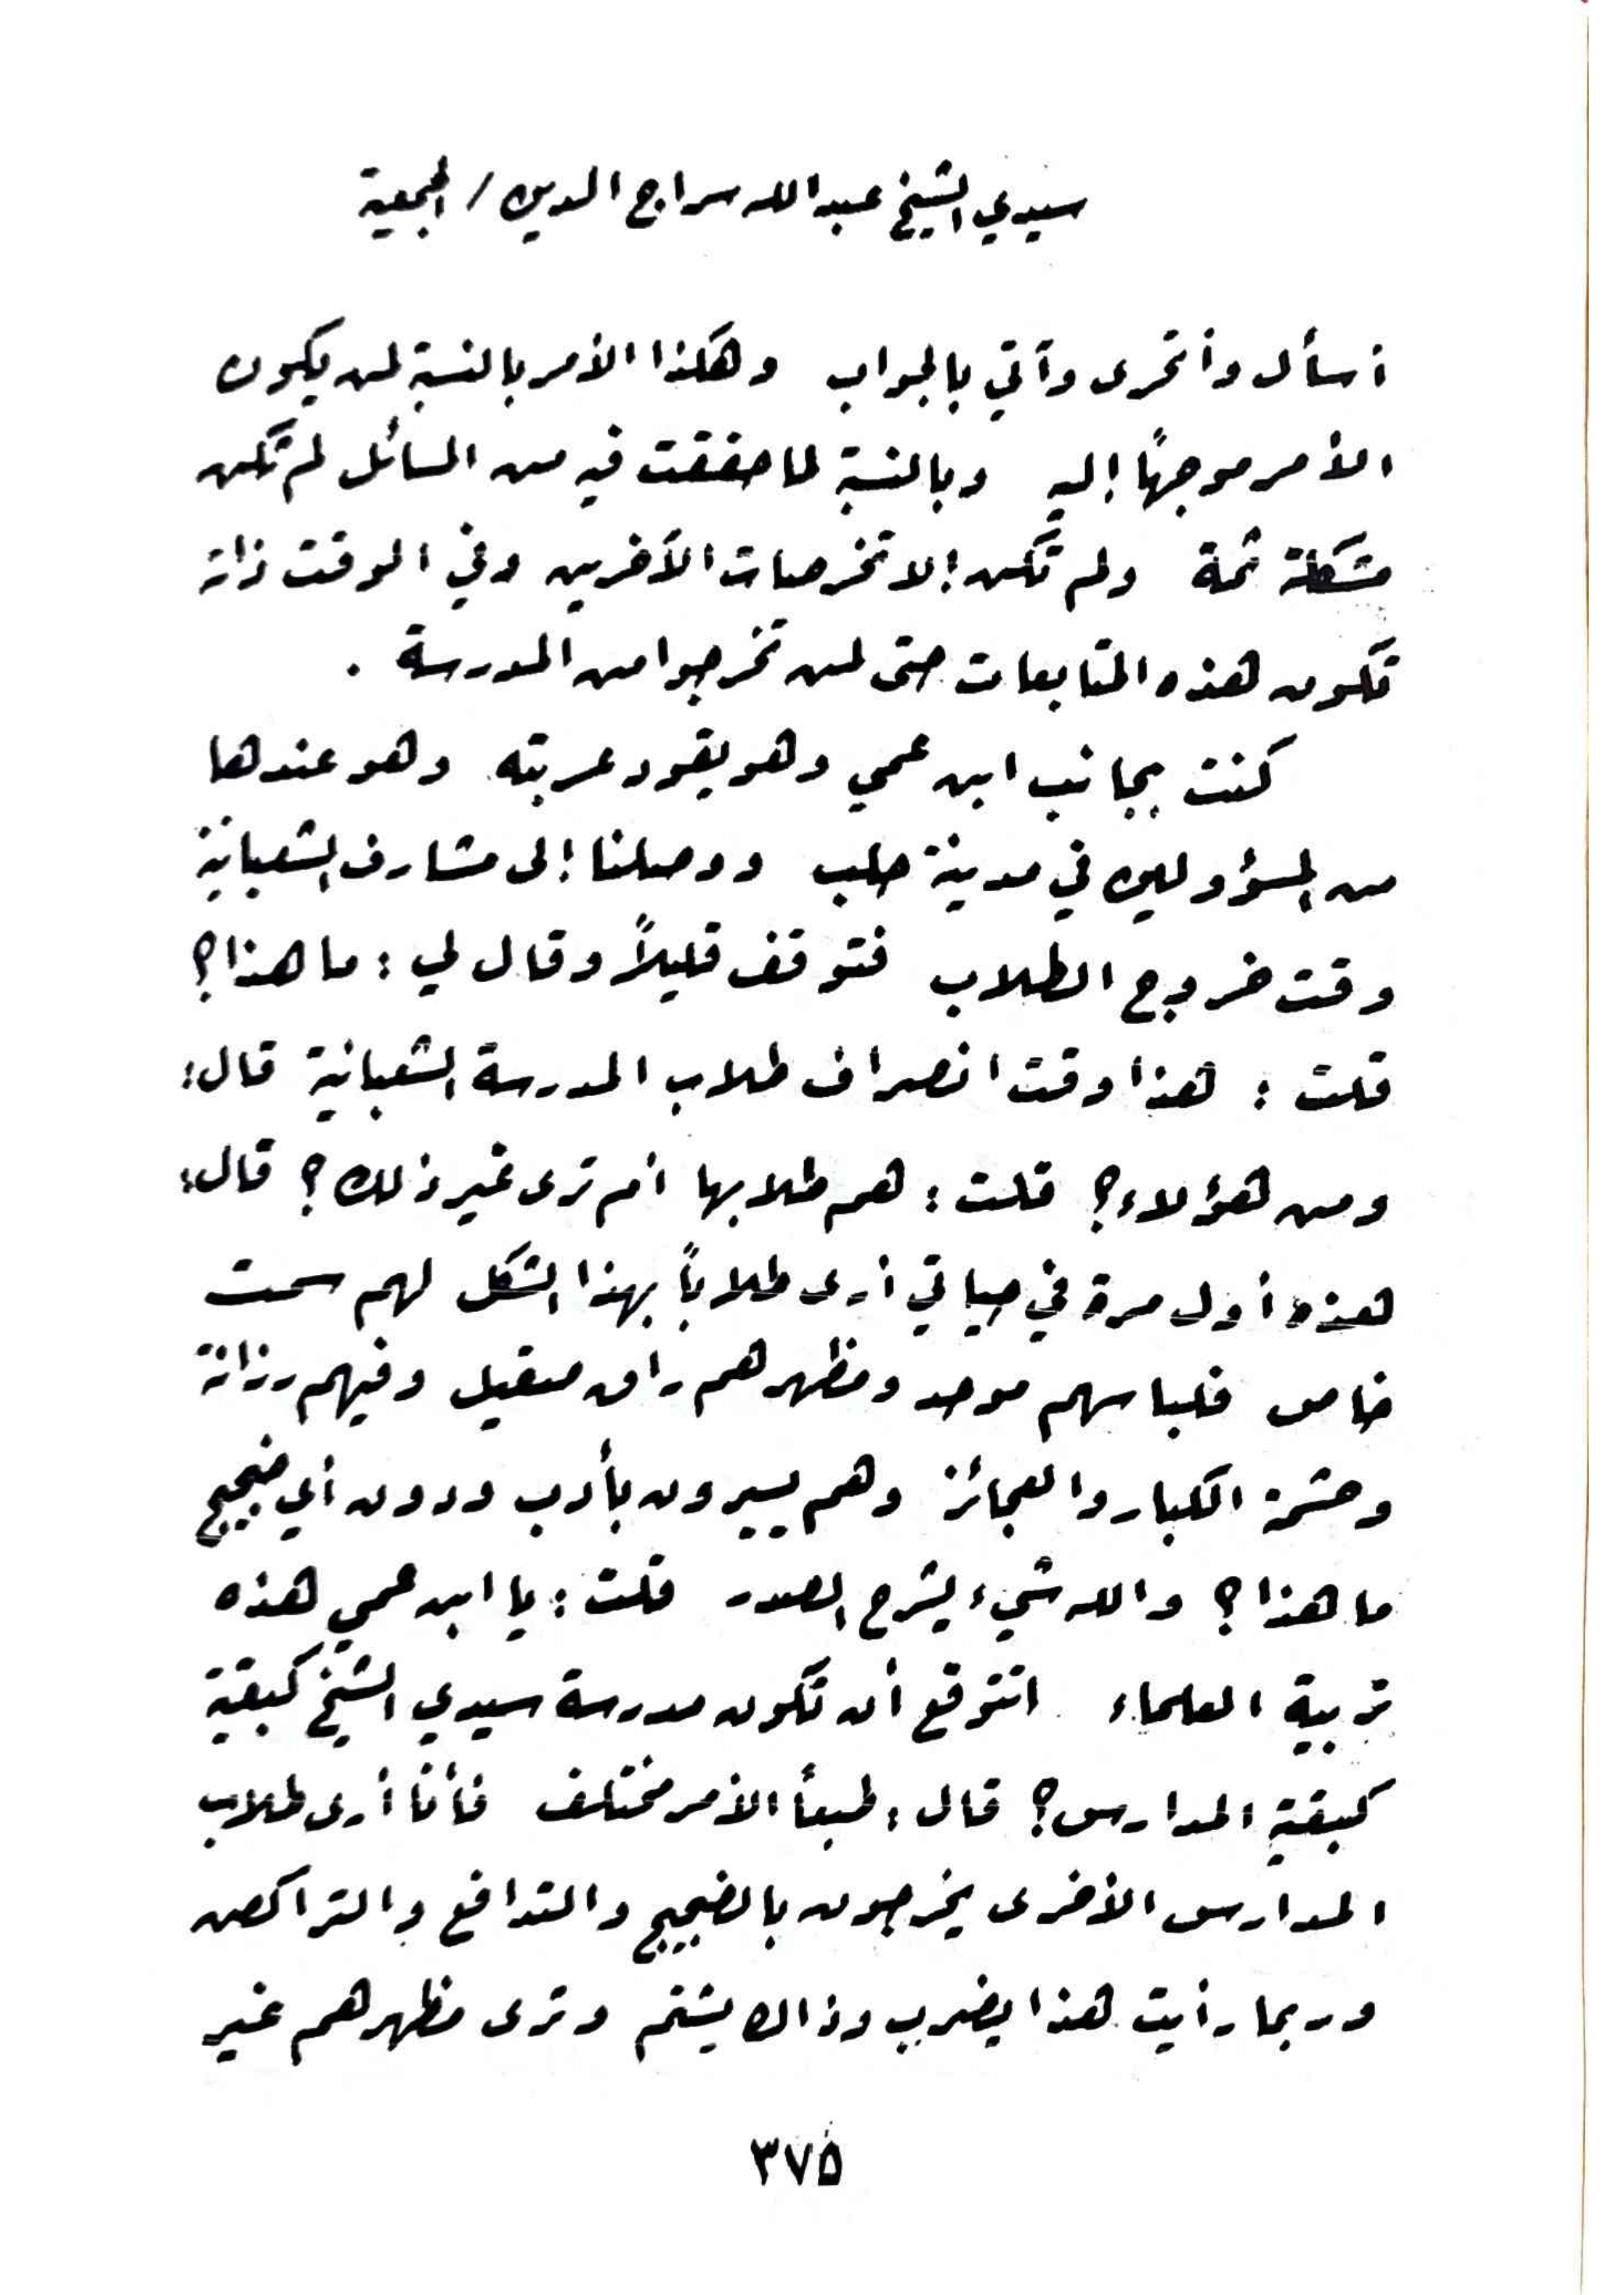 سيدي الشيخ عبد الله سراج الدين / الجمعية
أسأل وأتحرى وآتي بالجواب وهكذا الأمر بالنسبة لمن يكون
الأمر موجهاً إليه وبالنسبة لما حققت فيه من المسائل لم تكن
مشكلة ثمة ولم تكن إلا تخرصات الآخرين وفي الوقت ذاته
تكون هذه المتابعات حتى لمن تخرجوا من المدرسة .
كنت بجانب ابن عمي وهو يقود عربته وهو عندها
من المسؤولين في مدينة حلب ووصلنا إلى مشارف الشعبانية
وقت خروج الطلاب فتوقف قليلاً وقال لي : ما هذا؟
قلت : هذا وقت انصراف طلاب المدرسة الشعبانية قال:
ومن هؤلاء؟ قلت : هم طلابها أم ترى غير ذلك؟ قال:
هذه أول مرة في حياتي أرى طلاباً بهذا الشكل لهم سمت
خاص فلباسهم موحد ومظهرهم راق صقيل وفيهم رزانة
وحشمة الكبار والعجائز وهم يسيرون بأدب ودون أي ضجيج
ما هذا؟ والله شيء يشرح الصدر قلت : يا ابن عمي هذه
تربية العلماء اتتوقع أن تكون مدرسة سيدي الشيخ كبقية
كبقية المدارس؟ قال : طبعاً الأمر مختلف فأنا أرى طلاب
المدارس الأخرى يخرجون بالضجيج والتدافع والتراكض
وربما رأيت هذا يضرب وذاك يشتم وترى مظهرهم غير
٣٧٥